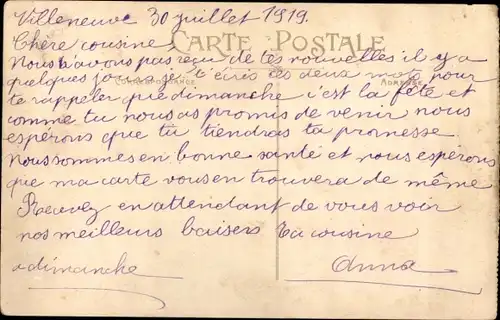 Villeneuve 30 juillet 1919.
CARTE POSTALE
Chère cousine,
Nous n'avons pas reçu de tes nouvelles il y a
quelques jours je t'écris ces deux mots pour
ADRESSE
te rappeler que dimanche c'est la fête et
comme tu nous as promis de venir nous
espérons que tu tiendras ta promesse.
Nous sommes en bonne santé et nous espérons
que ma carte vous en trouvera de même
Recevez en attendant de vous voir
nos meilleurs baisers Ta cousine
a dimanche Anna